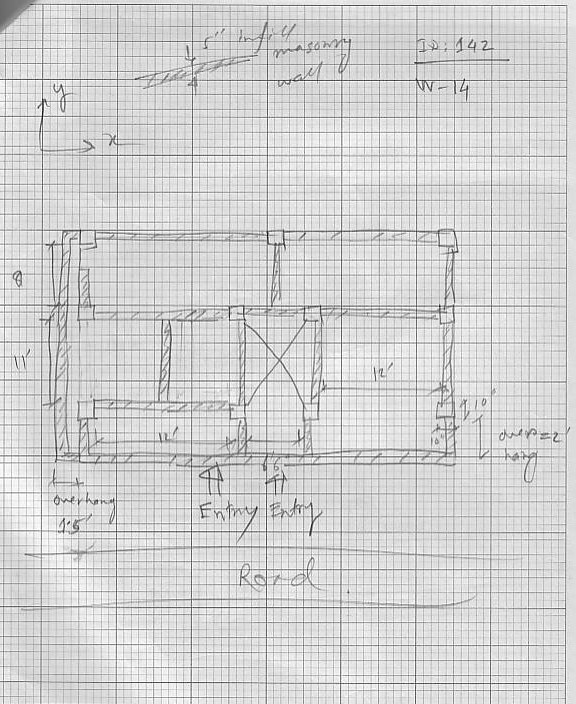 5" infill
masonry
wall
ID: 142
W-14
y
x
8
11'
12'
10"
12'
6'6"
10"
over=2'
hang
overhang
1.5'
Entry
Entry
Road